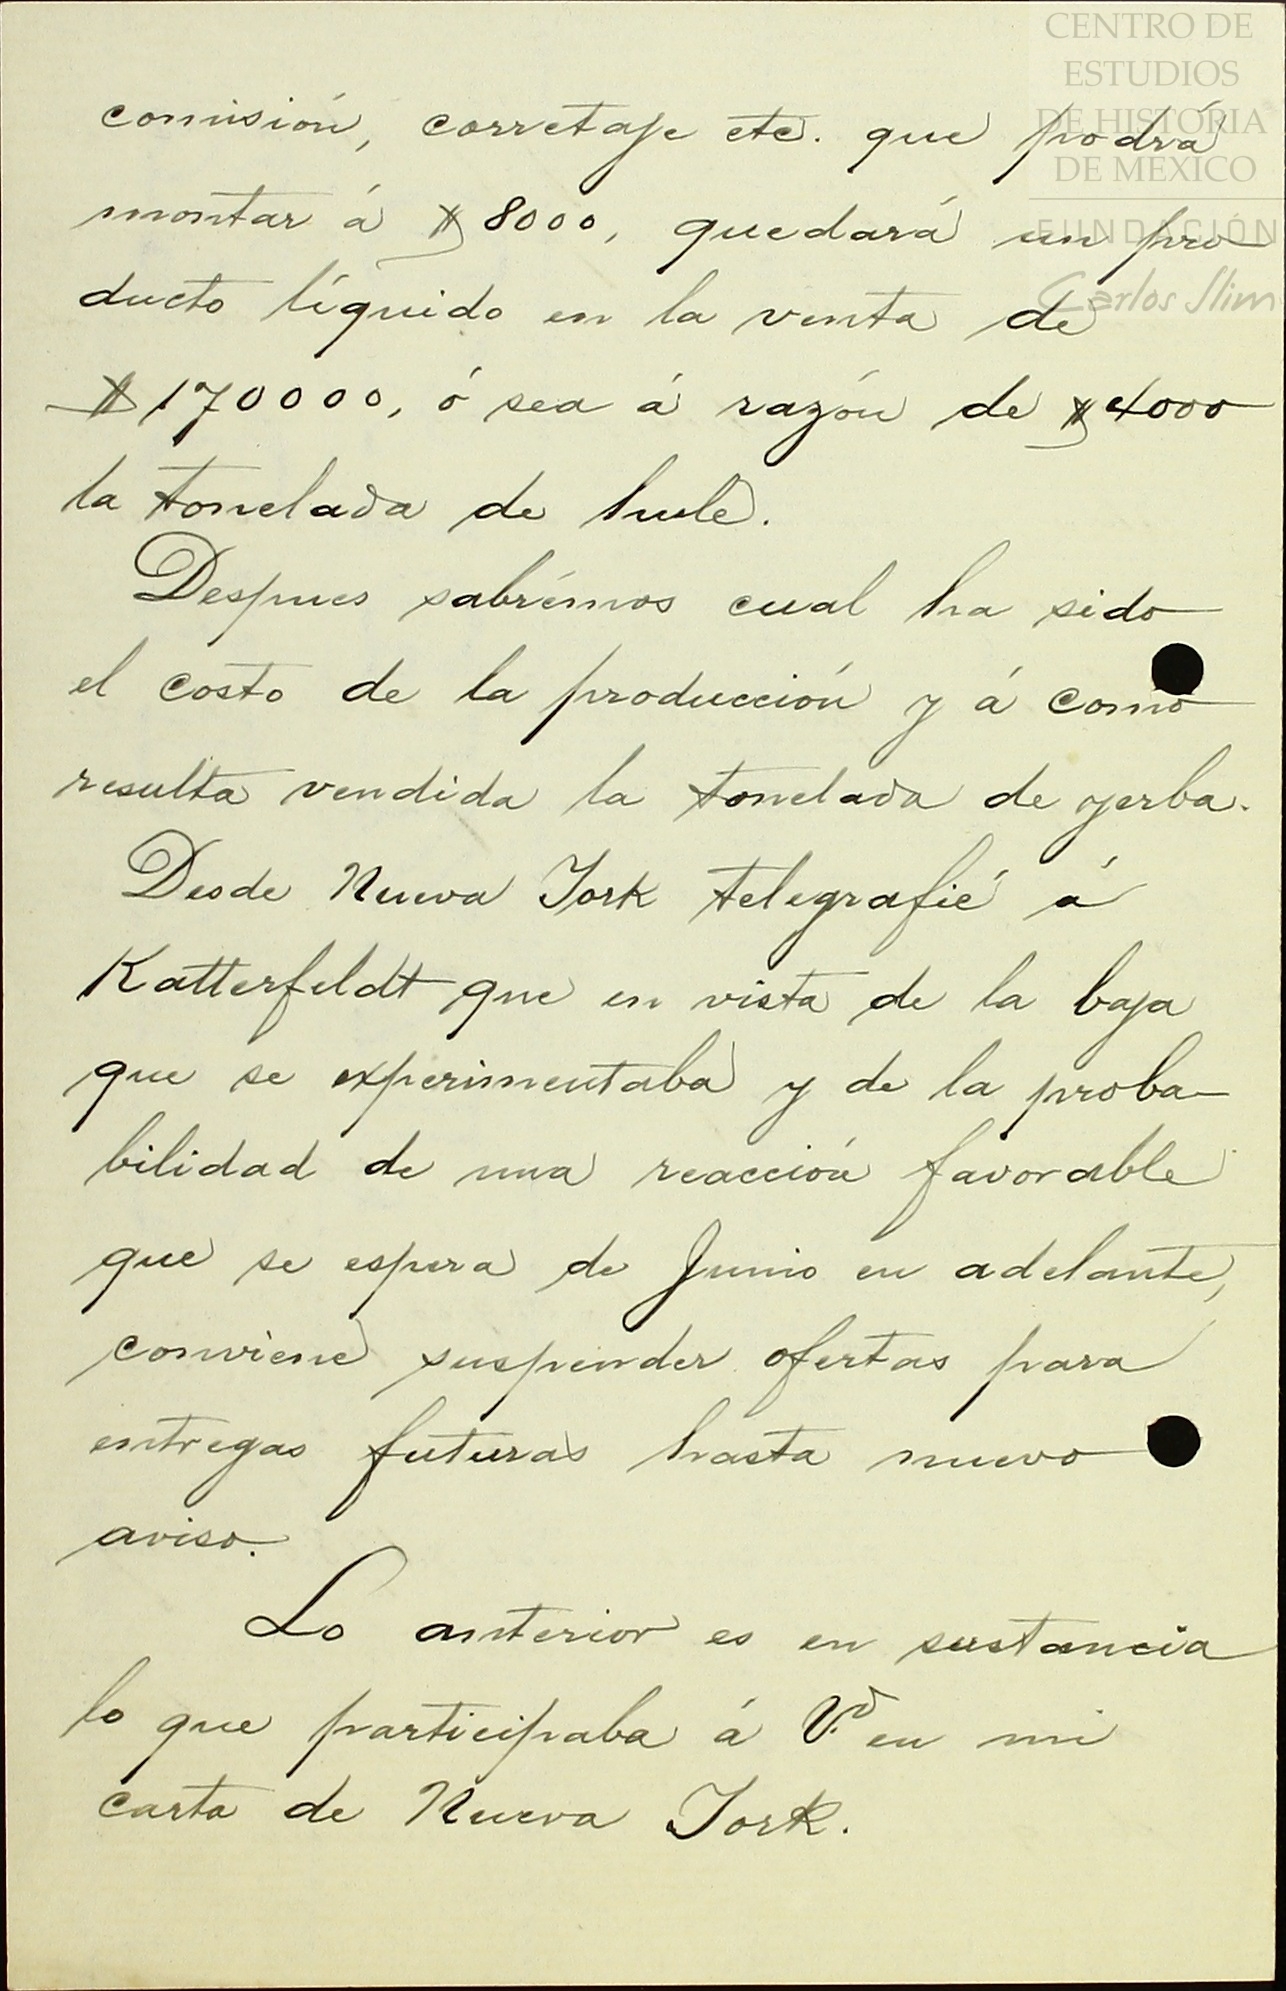 CENTRO DE
ESTUDIOS
DE HISTORIA
DE MEXICO
FUNDACIÓN
Carlos Slim
comisión, corretaje etc. que podrá
montar á $8000, quedará un pro
ducto líquido en la venta de
$170000, ó sea á razón de $4000
la tonelada de hule.
Despues sabrémos cual ha sido
el costo de la producción y á como
resulta vendida la tonelada de yerba.
Desde Nueva York telegrafié á
Katterfeldt que en vista de la baja
que se experimentaba y de la proba-
bilidad de una reacción favorable
que se espera de Junio en adelante,
conviene suspender ofertas para
entregas futuras hasta nuevo
aviso.
Lo anterior es en sustancia
lo que participaba á V.d en mi
carta de Nueva York.